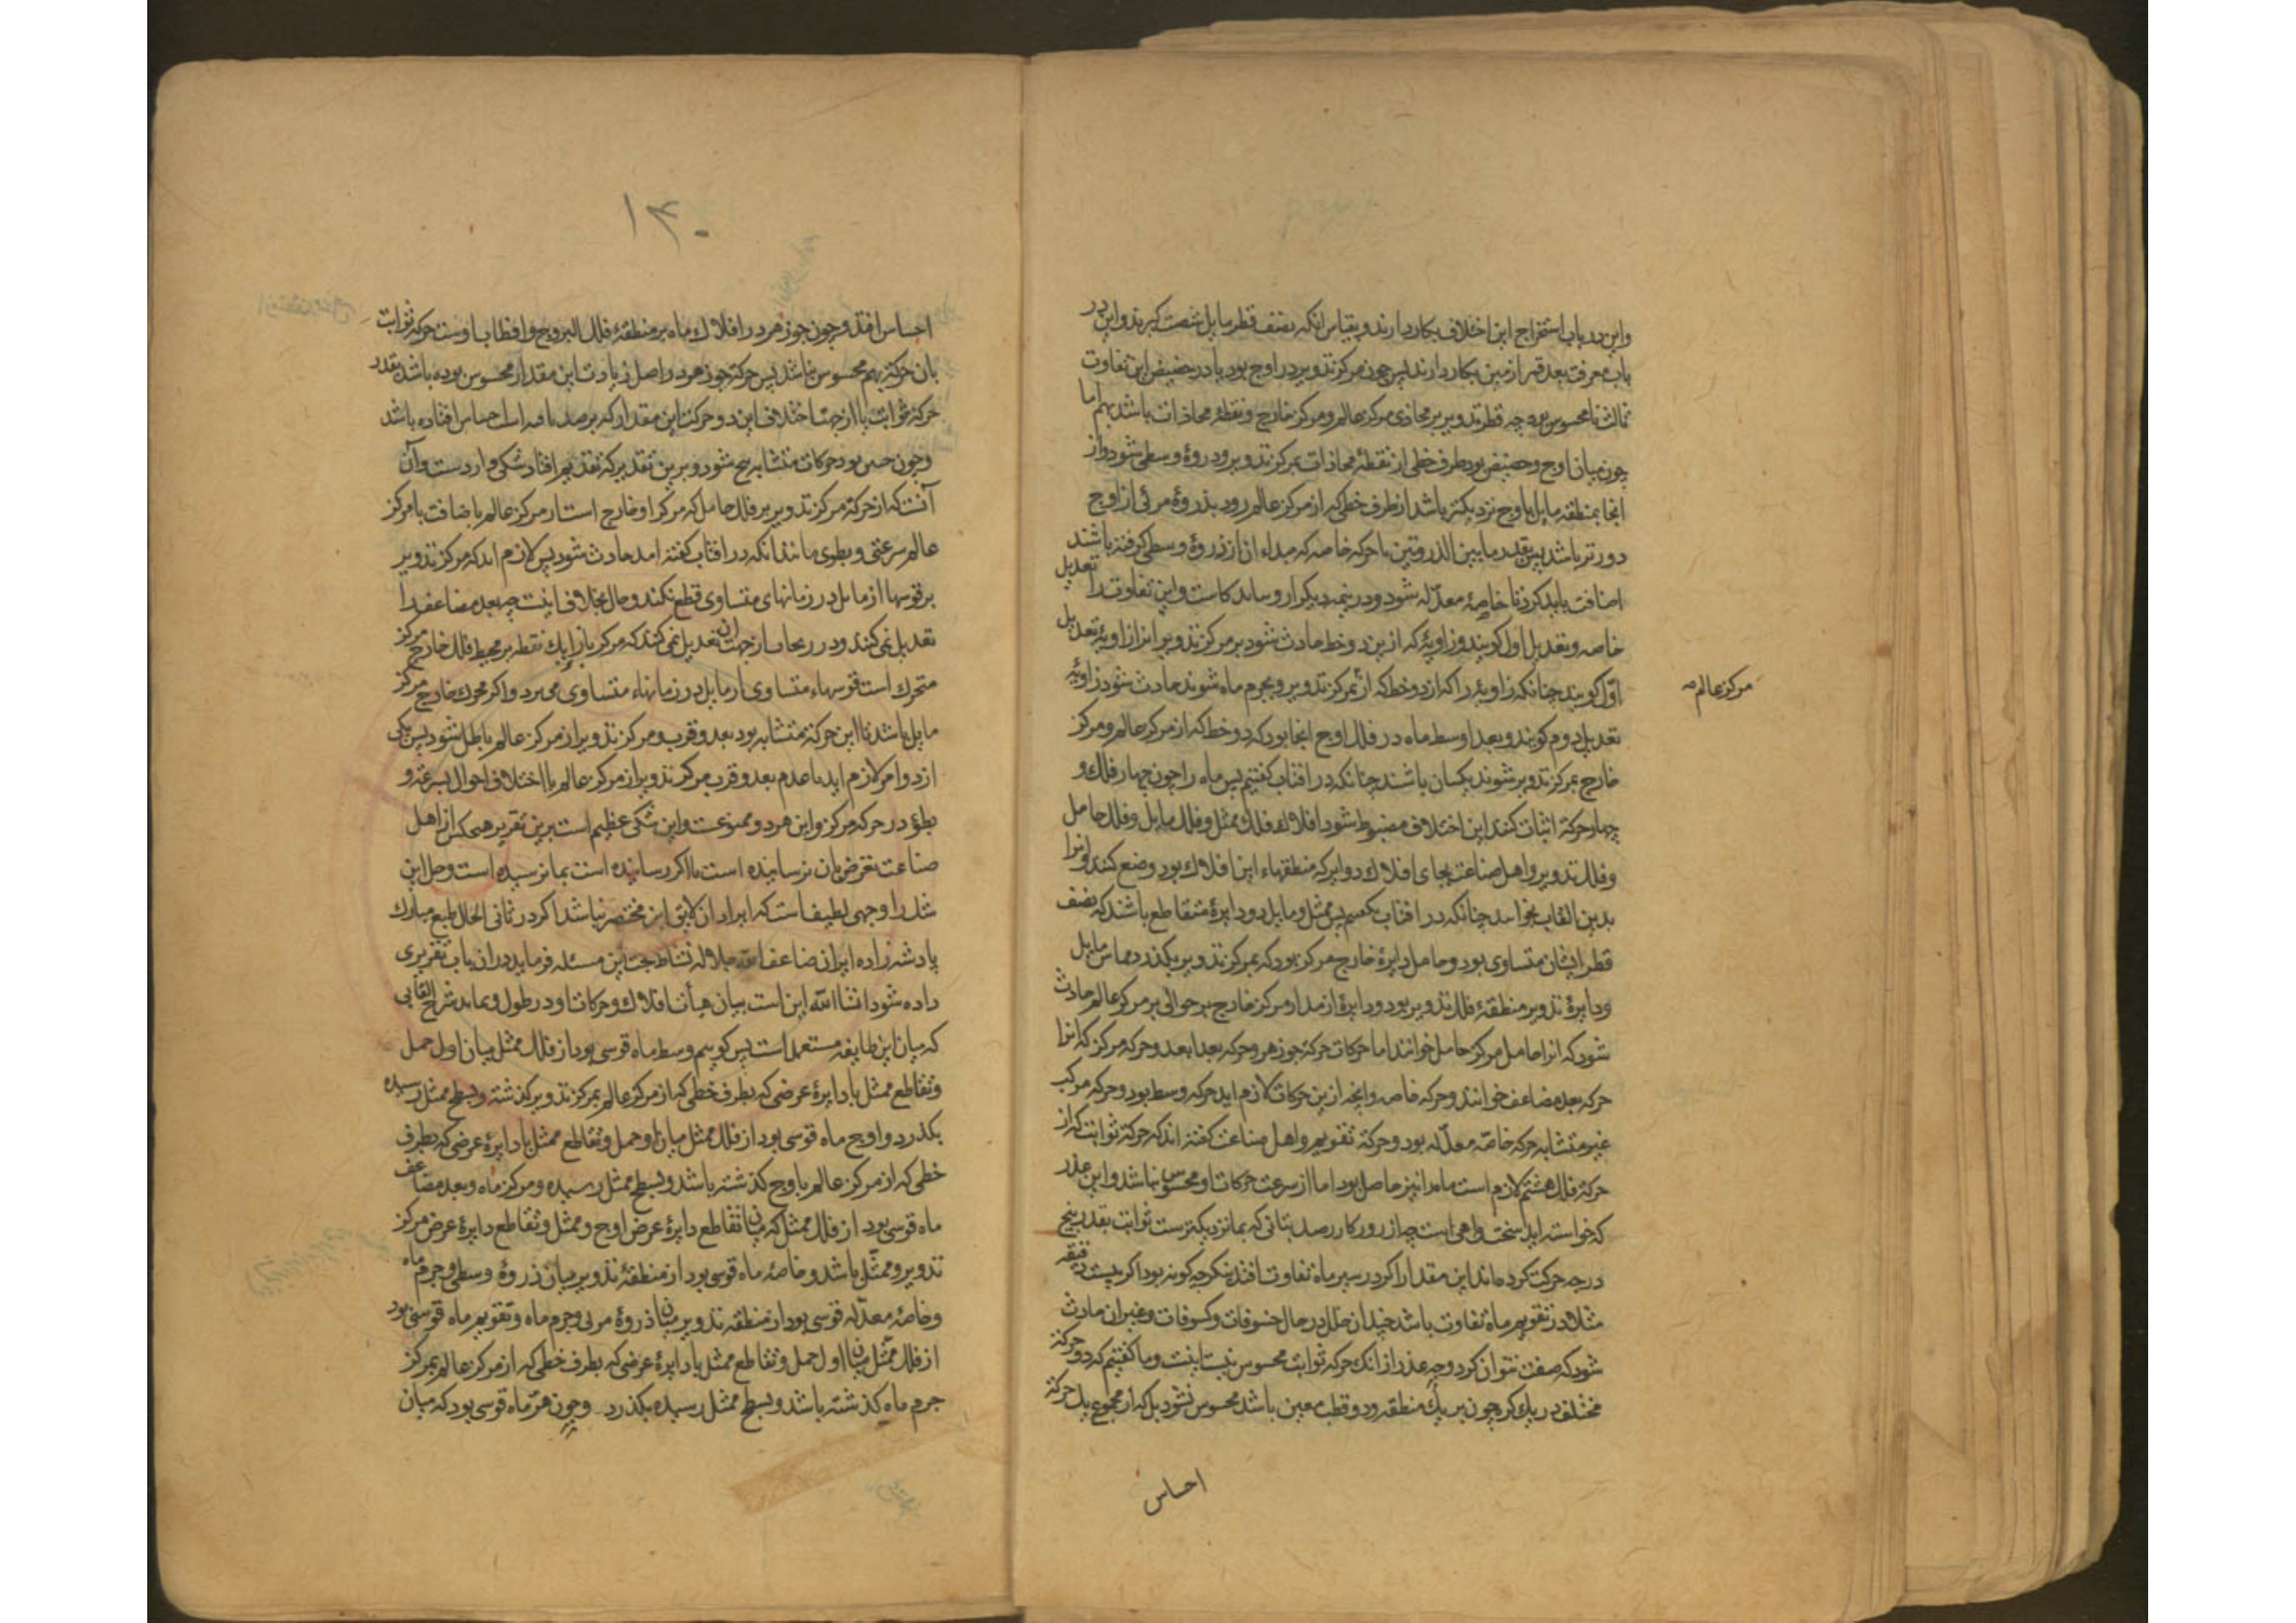 واین در باب استخراج این اختلاف بکار دارند و بقیاس آنکه نصف قطر مایل شصت گیرند و این در
باب معرفت بعد قمر از زمین بکار دارند پس چون مرکز تدویر در اوج بود یا در حضیض این تفاوت
ثالث نامحسوس بود چه قطر تدویر بر محاذی مرکز عالم و مرکز خارج و نقطۀ محاذات باشد بهم اما
چون میان اوج و حضیض بود طرف خطی از نقطۀ محاذات بمرکز تدویر رود ذروۀ وسطی شود و از
انجا بمنطقه مایل باوج نزدیکتر باشد از طرف خطی که از مرکز عالم رود بذروۀ مرئی از اوج
دورتر باشد پس بقدر مابین الذروتین با حرکه خاصه که مبداء آن از ذروۀ وسطی گرفته باشند
اضافت باید کرد تا خاصۀ معدله شود و در نیمه دیگر و این تفاوت را تعدیل
خاصه و تعدیل اول گویند و زاویۀ که ازین دو خط حادث شود بر مرکز تدویر انرا زاویۀ تعدیل
اول گویند چنانکه زاویۀ را که از دو خط که از مرکز تدویر و بجرم ماه شوند حادث شود زاویۀ
مرکز عالم
تعدیل دوم گویند و بعد اوسط ماه در فلک اوج انجا بود که دو خط که از مرکز عالم و مرکز
خارج بمرکز تدویر شوند یکسان باشند چنانکه در افتاب گفتیم پس ماه را چون چهار فلک و
چهار حرکة اثبات کنند این اختلاف مضبوط شود افلاک فلک ممثل و فلک مایل و فلک حامل
و فلک تدویر و اهل صناعت بجای افلاک دوایر که منطقهاء این افلاک بود وضع کنند و انرا
بدین القاب بخوانند چنانکه در افتاب گفتیم پس ممثل و مایل دو دایرۀ متقاطع باشند که نصف
قطر ایشان متساوی بود و حامل دایرۀ خارج مرکز بود که بمرکز تدویر بگذرد مماس مایل
و دایرۀ تدویر منطقۀ فلک تدویر بود و دایرۀ از مدار مرکز خارج بر حوالی بر مرکز عالم حادث
شود که انرا حامل مرکز حامل خوانند اما حرکات حرکة جوزهر و حرکه بعد ابعد و حرکه مرکز که انرا
حرکه بعد مضاعف خوانند و حرکه خاصه و انچه ازین حرکات لازم اید حرکه وسط بود و حرکه مرکب
غیر متشابه حرکه خاصۀ معدله بود و حرکة تقویم و اهل صناعت گفته اند که حرکة ثوابت که از
حرکۀ فلک هشتم لازم است ماه را نیز حاصل بود اما از سرعت حرکات او محسوس نباشد و این عذر
که خواسته اید سخت واهی است چه از روزگار رصد بتانی که بما نزدیکترست ثوابت بقدر پنج
درجه حرکت کرده اند این مقدار اگر در سیر ماه تفاوت افتد بنگر چگونه بود اگر بیست دقیقه
مثلا در تقویم ماه تفاوت باشد چندان خلل در حال خسوفات و کسوفات و غیر ان حادث
شود که صفت نتوان کرد و چه عذر از انک حرکه ثوابت محسوس نیست اینست و ما گفتیم که دو حرکة
مختلف در یک کره چون بر یک منطقه و دو قطب معین باشد محسوس نشود بل که از مجموع یک حرکة
احساس
۱۳۰
احساس افتد و چون جوزهر در افلاک ماه بر منطقۀ فلک البروج و اقطاب اوست حرکه ثوابت
بان حرکة بهم محسوس نباشد پس حرکة جوزهر در اصل زیادت این مقدار محسوس بوده باشد بقدر
حرکة ثوابت یا از جهت اختلاف این دو حرکت این مقدار که برصد یافته اند احساس افتاده باشد
و چون چنین بود حرکات متشابه صحیح شود و برین تقدیر که تقدیم افتاد شکی وارد است و آن
آنست که از حرکة مرکز تدویر بر فلک حامل که مرکز او خارج است از مرکز عالم باضافت با مرکز
عالم سرعتی و بطوی مانند انکه در افتاب گفته امد حادث شود پس لازم اید که مرکز تدویر
بر قوسها از مایل در زمانهای متساوی قطع نکند و حال بخلاف اینست چه بعد مضاعف را
تعدیل نمی کنند و از جهت ان تعدیل نمی کنند که مرکز بازاء یک نقطه بر محیط فلک خارج مرکز
متحرک است قوسهاء متساوی از مایل در زمانهاء متساوی می برد و اگر محرک خارج مرکز
مایل باشد تا این حرکة متشابه بود بعد و قرب مرکز تدویر از مرکز عالم باطل شود پس یکی
از دو امر لازم اید یا عدم بعد و قرب مرکز تدویر از مرکز عالم یا اختلاف احوال بسرعة و
بطؤ در حرکه مرکز و این هر دو ممنوعست و این شکی عظیم است برین تقریر هیچ کس از اهل
صناعت تعرض بان نرسانیده است یا اگر رسانیده است بما نرسیده است و حل این
شک را وجهی لطیف است که ایراد ان لایق این مختصر نباشد اگر در ثانی الحال طبع مبارک
پادشه زاده ایران ضاعف الله جلاله نشاط بحث این مسئله فرماید در ان باب تقریری
داده شود انشاالله این است بیان هیأت افلاک و حرکات او در طول و بماند شرح القابی
که میان این طایفه مستعمل است پس گوییم وسط ماه قوسی بود از فلک ممثل میان اول حمل
و تقاطع ممثل با دایرۀ عرضی که بطرف خطی که از مرکز عالم بمرکز تدویر گذشته و بسطح ممثل رسیده
بگذرد و اوج ماه قوسی بود از فلک ممثل میان اول حمل و تقاطع ممثل با دایرۀ عرضی که بطرف
خطی که از مرکز عالم باوج گذشته باشد و بسطح ممثل رسیده و مرکز ماه و بعد مضاعف
ماه قوسی بود از فلک ممثل که میان تقاطع دایرۀ عرض اوج و ممثل و تقاطع دایرۀ عرض مرکز
تدویر و ممثل باشد و خاصۀ ماه قوسی بود از منطقۀ تدویر میان ذروۀ وسطی و جرم ماه
و خاصۀ معدله قوسی بود از منطقه تدویر میان ذروۀ مرئی و جرم ماه و تقویم ماه قوسی بود
از فلک ممثل میان اول حمل و تقاطع ممثل با دایرۀ عرضی که بطرف خطی که از مرکز عالم بمرکز
جرم ماه گذشته باشد و بسطح ممثل رسیده بگذرد و چون ماه قوسی بود که میان